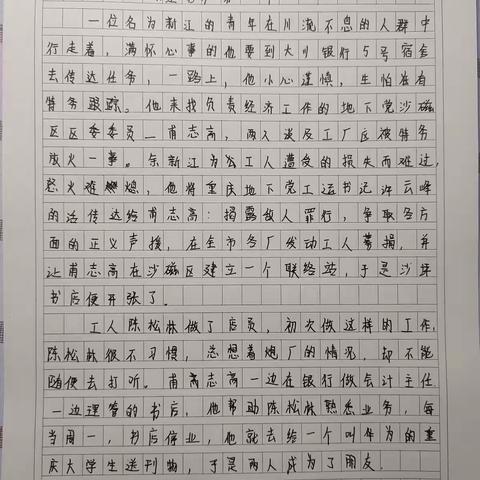 一位名为新江的青年在川流不息的人群中
行走着，满怀心事的他要到大川银行5号宿舍
去传达任务，一路上，他小心谨慎，生怕在有
特务跟踪。他来找负责经济工作的地下党沙磁
区区委委员—甫志高，两人谈及工厂区被特务
放火一事。余新江为公工人遭受的损失而难过，
怒火难燃熄，他将重庆地下党工运书记许云峰
的话传达给甫志高：揭露敌人罪行，争取各方
面的正义声援，在全市各厂发动工人募捐，并
让甫志高在沙磁区建立一个联络站，于是沙坪
书店便开张了。
工人陈松林做了店员，初次做这样的工作，
陈松林很不习惯，总想着炮厂的情况，却不能
随便去打听。甫高志高一边在银行做会计主任
一边理管的书店，他帮助陈松林熟悉业务，每
当周一，书店停业，他就去给一个叫华为的重
庆大学生送刊物，于是两人成为了朋友。